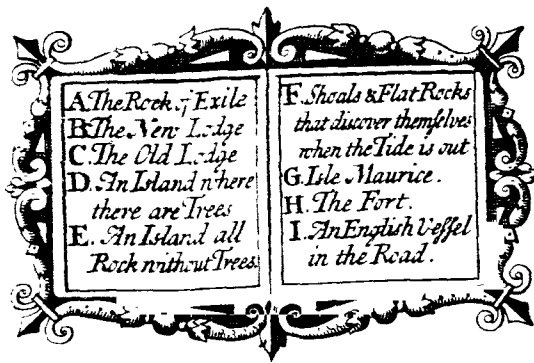 A. The Rock of Exile
B. The New Lodge
C. The Old Lodge
D. An Island where
there are Trees
E. An Island all
Rock without Trees.
F. Shoals & Flat Rocks
that discover themſelves
when the Tide is out
G. Isle Maurice.
H. The Fort.
I. An English Veſſel
in the Road.